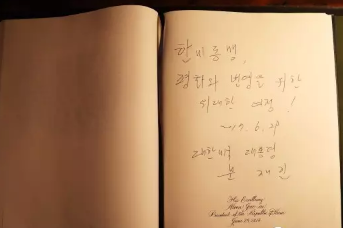 한미동맹,
평화와 번영을 위한
위대한 여정!
2017. 6. 28
대한민국 대통령
문 재 인
His Excellency
Moon Jae-in
President of the Republic of Korea
June 28, 2017